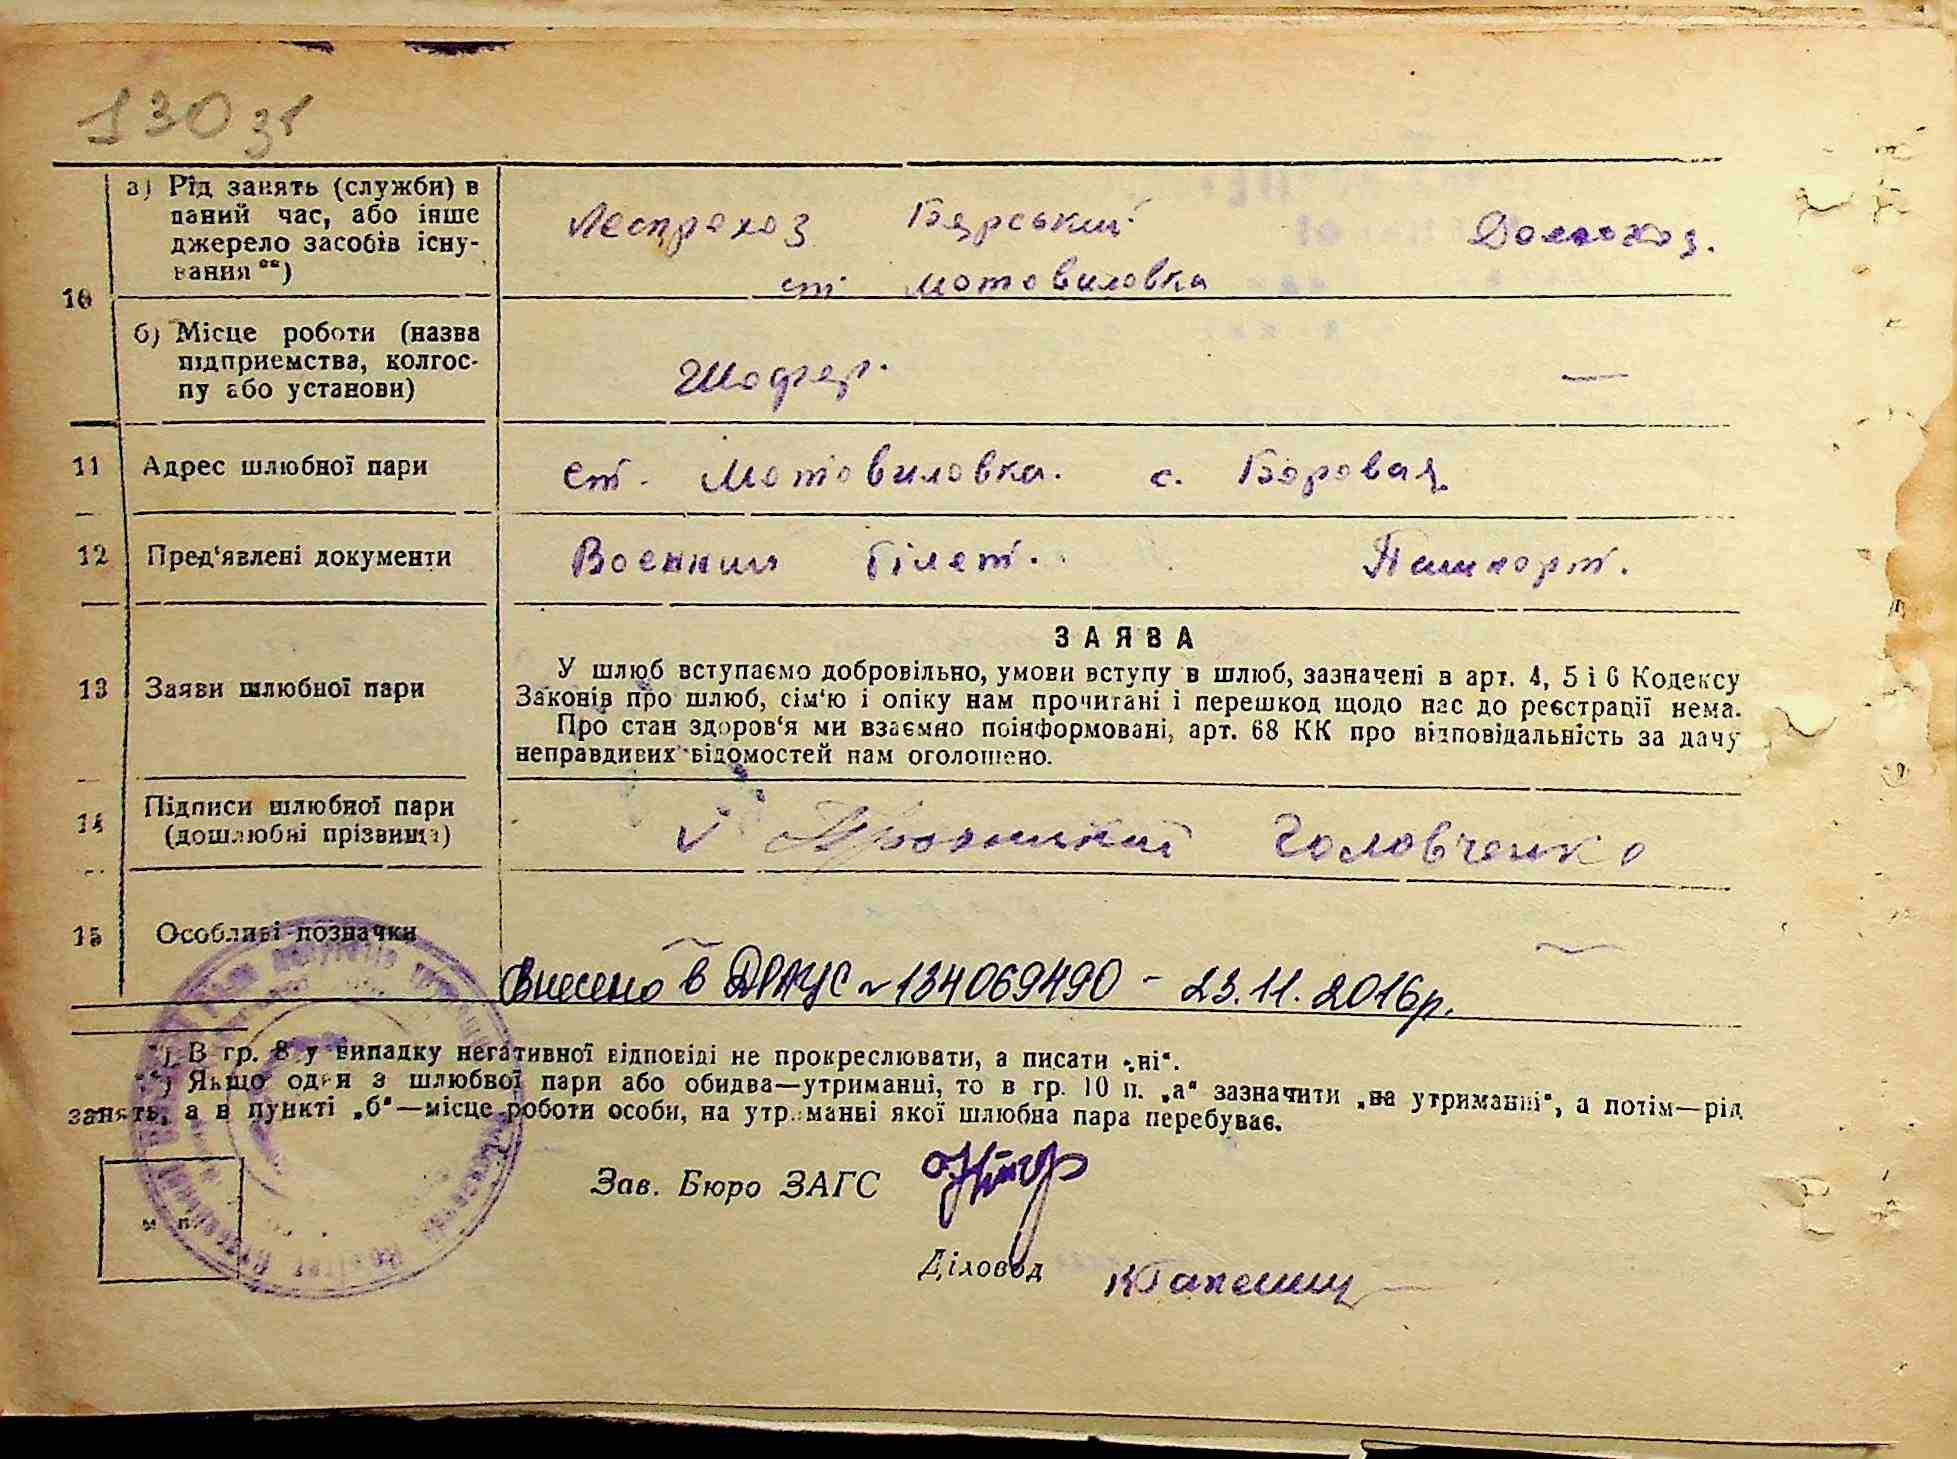 130 зв
10
а) Рід занять (служби) в
даний час, або інше
джерело засобів існу-
вання **)
Леспрохоз Боярський
ст. Мотовиловка
Домохоз.
б) Місце роботи (назва
підприємства, колгос-
пу або установи)
Шофер.
—
11 Адрес шлюбної пари
ст. Мотовиловка. с. Боровая
12 Пред'явлені документи
Военний білет. Пашпорт.
13 Заяви шлюбної пари
ЗАЯВА
У шлюб вступаємо добровільно, умови вступу в шлюб, зазначені в арт. 4, 5 і 6 Кодексу
Законів про шлюб, сім'ю і опіку нам прочитані і перешкод щодо нас до реєстрації нема.
Про стан здоров'я ми взаємно поінформовані, арт. 68 КК про відповідальність за дачу
неправдивих відомостей нам оголошено.
14 Підписи шлюбної пари
(дошлюбні прізвища)
Головченко
15 Особливі позначки
Внесено в ДРАЦС № 134069490 - 23.11.2016р.
*) В гр. 8 у випадку негативної відповіді не прокреслювати, а писати „ні“.
**) Якщо один з шлюбної пари або обидва—утриманці, то в гр. 10 п. „а“ зазначити „на утриманні“, а потім—рід
занять, а в пункті „б“—місце роботи особи, на утриманні якої шлюбна пара перебуває.
Зав. Бюро ЗАГС
Діловод
м. п.